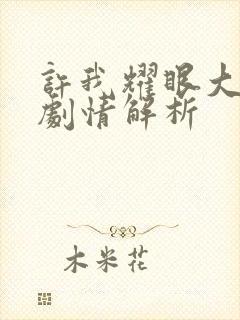 許我耀眼大
劇情解析
木米花